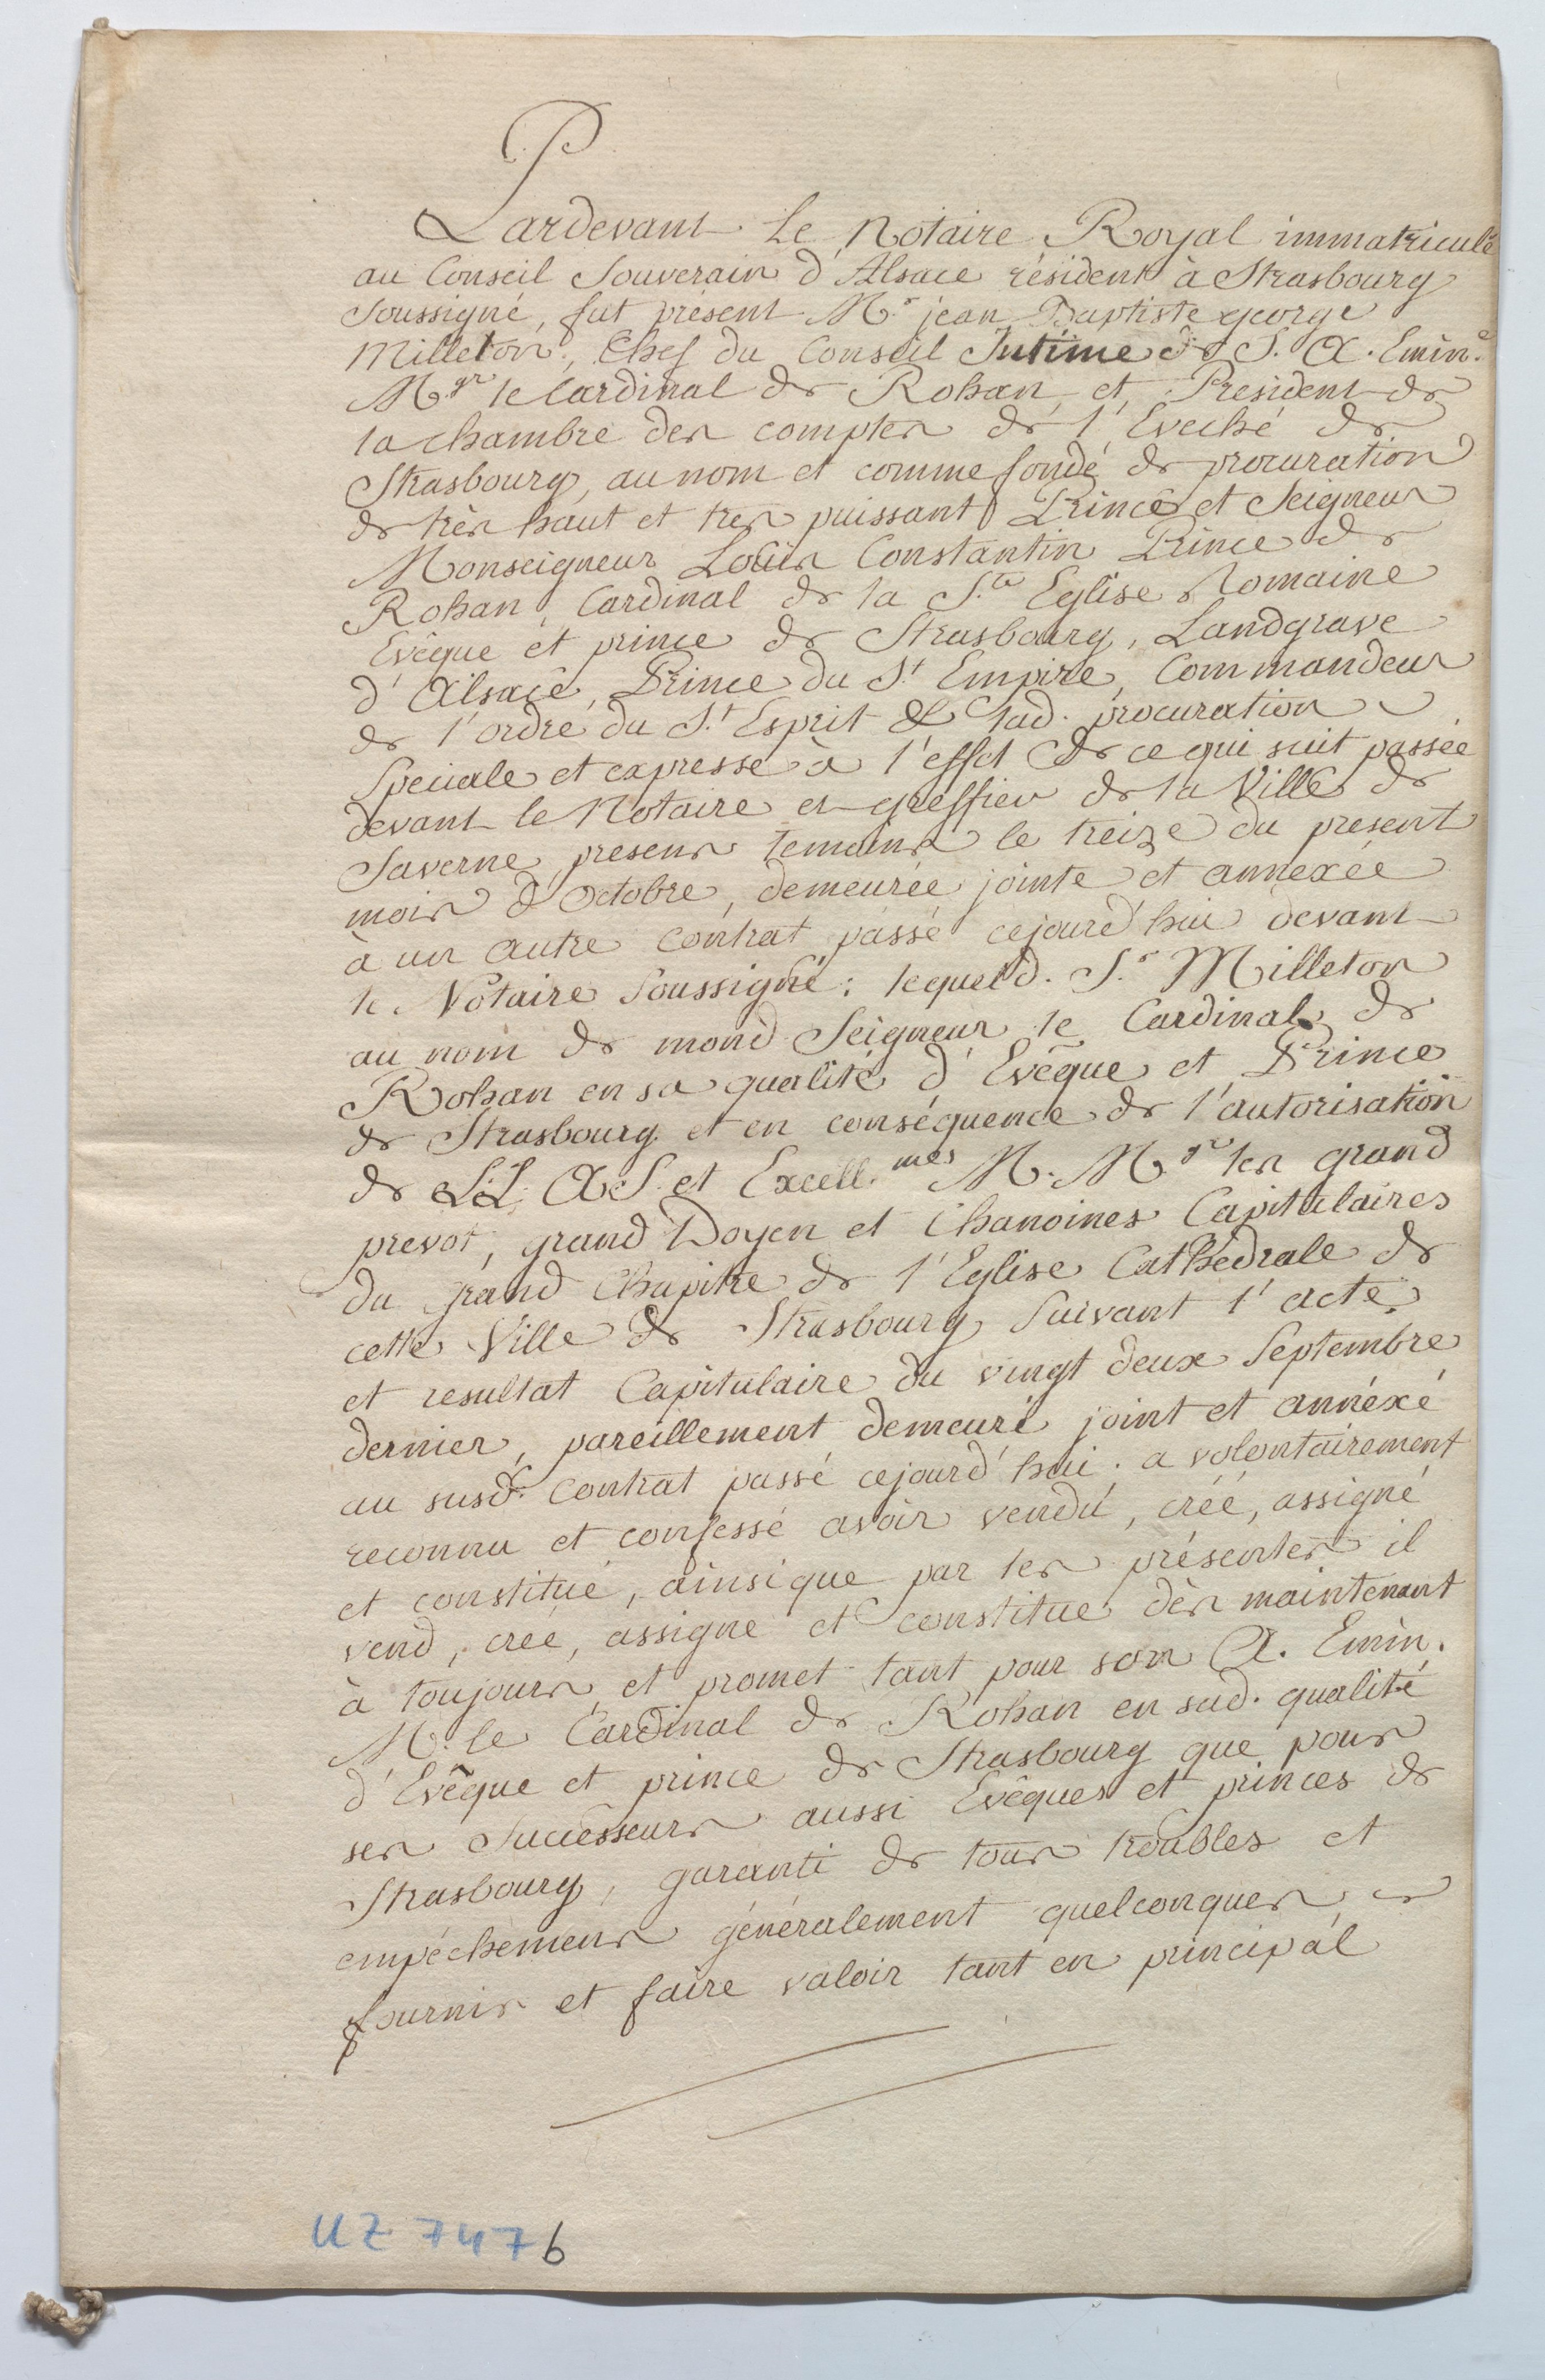 Pardevant Le Notaire Royal immatriculé
au Conseil Souverain d'Alsace résident à Strasbourg
Soussigné, fut présent M.r jean Baptiste george
Milleton, Chef du Conseil Intime de S. A. Emin.e
M.gr le Cardinal de Rohan, et President de
la chambre des comptes de l'Eveché de
Strasbourg, au nom et comme fondé de procuration
de très haut et tres puissant Prince et Seigneur
Monseigneur Louis Constantin Prince de
Rohan, Cardinal de la S.te Eglise Romaine
Evêque et prince de Strasbourg, Landgrave
d'Alsace, Prince du S.t Empire, Commandeur
de l'ordre du S.t Esprit &c lad. procuration
Speciale et expresse à l'effet de ce qui suit passée
devant le Notaire et greffier de la Ville de
Saverne, presens temoins le treize du present
mois d'Octobre, demeurée jointe et annexée
à un autre Contrat passé cejourd'hui devant
le Notaire Soussigné; lequel d. S.r Milleton
au nom de mond Seigneur le Cardinal de
Rohan en sa qualité d'Evêque et Prince
de Strasbourg et en conséquence de l'autorisation
de LL. A S. et Excell.mes M. M.gr les grand
prevot, grand Doyen et Chanoines Capitulaires
du grand Chapitre de l'Eglise Cathedrale de
cette Ville de Strasbourg, Suivant l'acte
et resultat Capitulaire du vingt deux Septembre
dernier, pareillement demeuré joint et annéxé
au susd. Contrat passé cejourd'hui. a volontairement
reconnu et confessé avoir vendu, créé, assigné
et constitué, ainsi que par les présentes il
vend, crée, assigne et constitue dès maintenant
à toujours, et promet tant pour son A. Emin.
M. le Cardinal de Rohan en sad. qualité
d'Evêque et prince de Strasbourg que pour
ses Successeurs aussi Evêques et princes de
Strasbourg, garanti de tous troubles et
empéchemens généralement quelconques
fournir et faire valoir tant en principal
UZ 7476